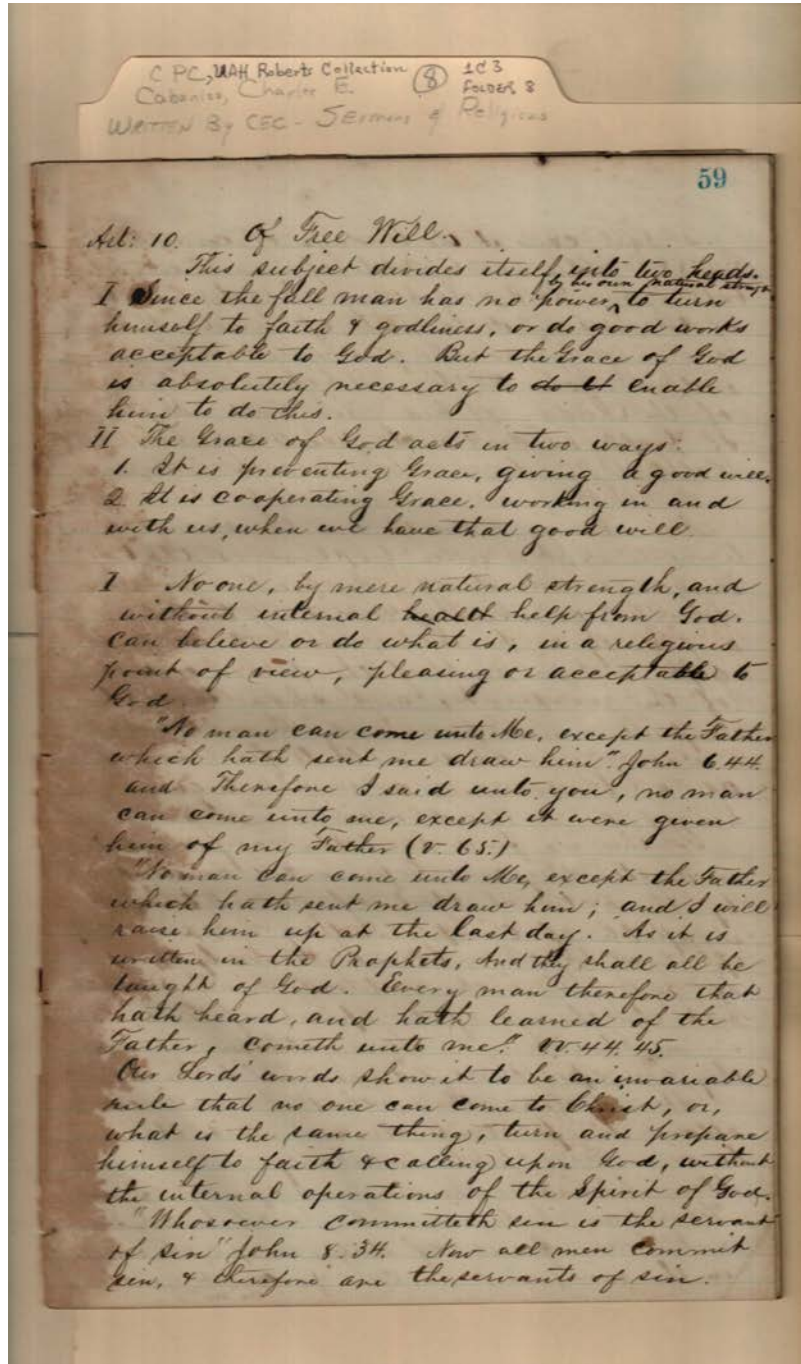 C PC, UAH Roberts Collection 8 1C3
Cabaniss, Charles E. FOLDER 8
WRITTEN By CEC - Sermons & Religious
59
Art: 10. Of Free Will.
This subject divides itself into two heads.
by his own natural strength
I Since the fall man has no power, to turn
himself to faith & godliness, or do good works
acceptable to God. But the Grace of God
is absolutely necessary to do it enable
him to do this.
II The Grace of God acts in two ways:
1. It is preventing Grace, giving a good will.
2. It is cooperating Grace, working in and
with us, when we have that good will.
I No one, by mere natural strength, and
without internal health help from God.
can believe or do what is, in a religious
point of view, pleasing or acceptable to
God.
"No man can come unto Me, except the Father
which hath sent me draw him". John 6.44.
and Therefore I said unto you, no man
can come unto me, except it were given
him of my Father (v. 65.)
"No man can come unto Me, except the Father
which hath sent me draw him; and I will
raise him up at the last day. As it is
written in the Prophets, And they shall all be
taught of God. Every man therefore that
hath heard, and hath learned of the
Father, cometh unto me." vv. 44. 45.
Our Lord's words show it to be an invariable
rule that no one can come to Christ, or,
what is the same thing, turn and prepare
himself to faith & calling upon God, without
the internal operations of the Spirit of God.
"Whosoever committeth sin is the servant
of sin" John 8.34. Now all men commit
sin, & therefore are the servants of sin.